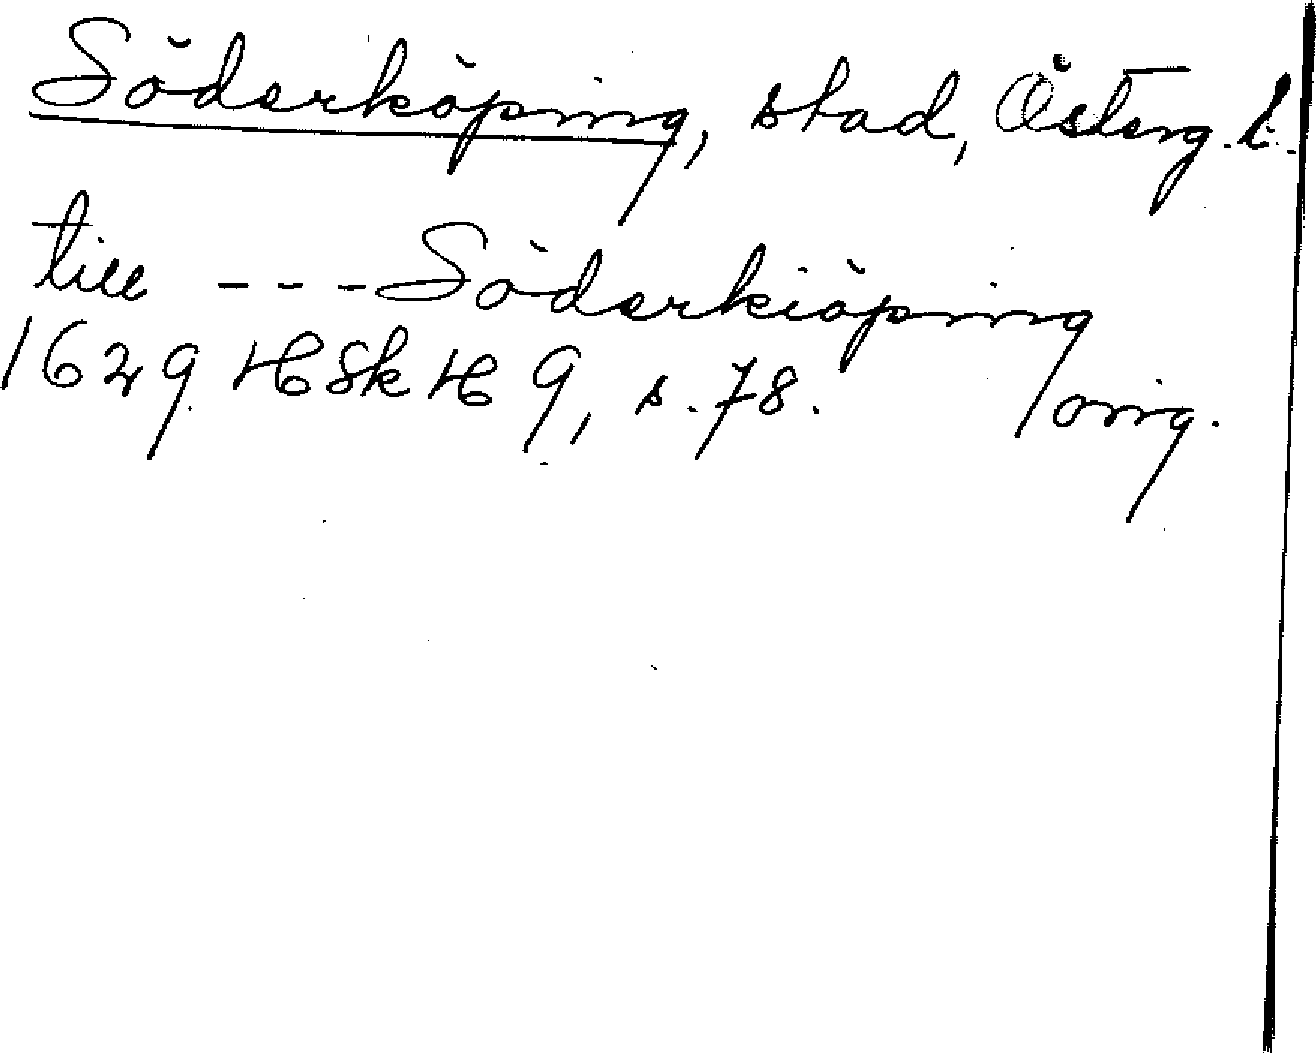 Söderköping, stad, Österg. l.
till --- Söderkiöping
1629 HSkH 9, s. 78. orig.